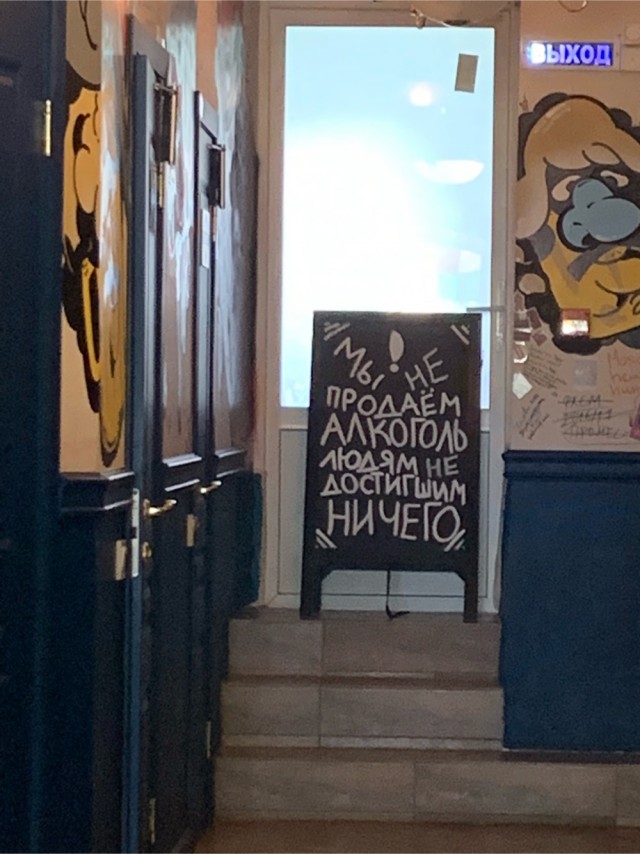 ВЫХОД
Мы ! НЕ
ПРОДАЁМ
АЛКОГОЛЬ
ЛЮДЯМ НЕ
ДОСТИГШИМ
НИЧЕГО